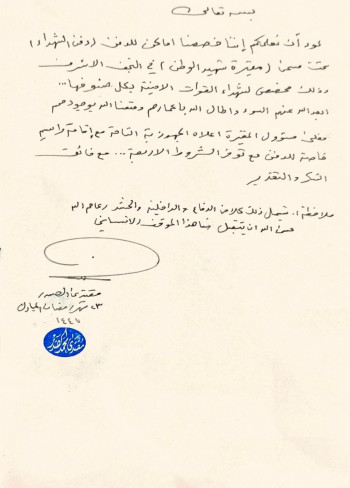 بسمه تعالى
نود أن نعلمكم إننا خصصنا اماكن للدفن (دفن الشهداء)
تحت مسمى (مقبرة شهيد الوطن) في النجف الاشرف
وذلك مخصص لشهداء القوات الامنية بكل صنوفها...
ابعد الله عنهم السوء واطال الله بأعمارهم ومتعنا الله بوجودهم
فعلى مسؤول المقبرة اعلاه الجهوزية التامة مع إقامة مراسيم
خاصة للدفن مع توفر الشروط اللازمة... مع فائق
الشكر والتقدير
ملاحظة: يشمل ذلك كلا من الدفاع والداخلية والحشد رعاهم الله
عسى الله ان يتقبل منا هذا الموقف الانساني
مقتدى الصدر
٢٣ شهر رمضان المبارك
١٤٤١